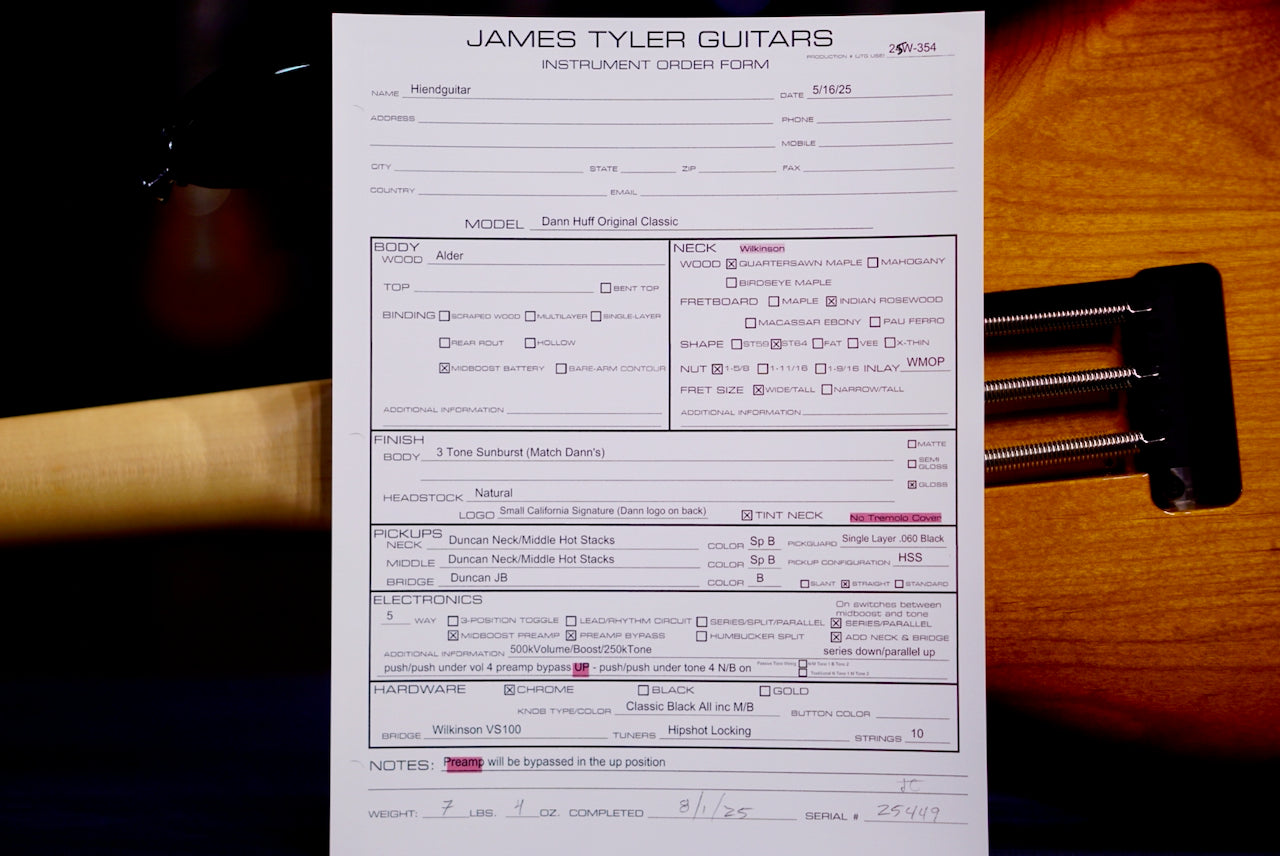 JAMES TYLER GUITARS
INSTRUMENT ORDER FORM
PRODUCTION # (JTG USE) 25W-354
NAME Hiendguitar DATE 5/16/25
ADDRESS PHONE
MOBILE
CITY STATE ZIP FAX
COUNTRY EMAIL
MODEL Dann Huff Original Classic
BODY
WOOD Alder
TOP BENT TOP
BINDING SCRAPED WOOD MULTILAYER SINGLE-LAYER
REAR ROUT HOLLOW
MIDBOOST BATTERY BARE-ARM CONTOUR
ADDITIONAL INFORMATION
NECK Wilkinson
WOOD QUARTERSAWN MAPLE MAHOGANY
BIRDSEYE MAPLE
FRETBOARD MAPLE INDIAN ROSEWOOD
MACASSAR EBONY PAU FERRO
SHAPE ST59 ST64 FAT VEE X-THIN
NUT 1-5/8 1-11/16 1-9/16 INLAY WMOP
FRET SIZE WIDE/TALL NARROW/TALL
ADDITIONAL INFORMATION
FINISH
BODY 3 Tone Sunburst (Match Dann's)
MATTE
SEMI GLOSS
GLOSS
HEADSTOCK Natural
LOGO Small California Signature (Dann logo on back) TINT NECK No Tremolo Cover
PICKUPS
NECK Duncan Neck/Middle Hot Stacks COLOR Sp B PICKGUARD Single Layer .060 Black
MIDDLE Duncan Neck/Middle Hot Stacks COLOR Sp B PICKUP CONFIGURATION HSS
BRIDGE Duncan JB COLOR B SLANT STRAIGHT STANDARD
ELECTRONICS
On switches between
midboost and tone
5 WAY 3-POSITION TOGGLE LEAD/RHYTHM CIRCUIT SERIES/SPLIT/PARALLEL SERIES/PARALLEL
MIDBOOST PREAMP PREAMP BYPASS HUMBUCKER SPLIT ADD NECK & BRIDGE
ADDITIONAL INFORMATION 500kVolume/Boost/250kTone series down/parallel up
push/push under vol 4 preamp bypass UP - push/push under tone 4 N/B on
HARDWARE CHROME BLACK GOLD
KNOB TYPE/COLOR Classic Black All inc M/B BUTTON COLOR
BRIDGE Wilkinson VS100 TUNERS Hipshot Locking STRINGS 10
NOTES: Preamp will be bypassed in the up position
JC
WEIGHT: 7 LBS. 4 OZ. COMPLETED 8/1/25 SERIAL # 25449